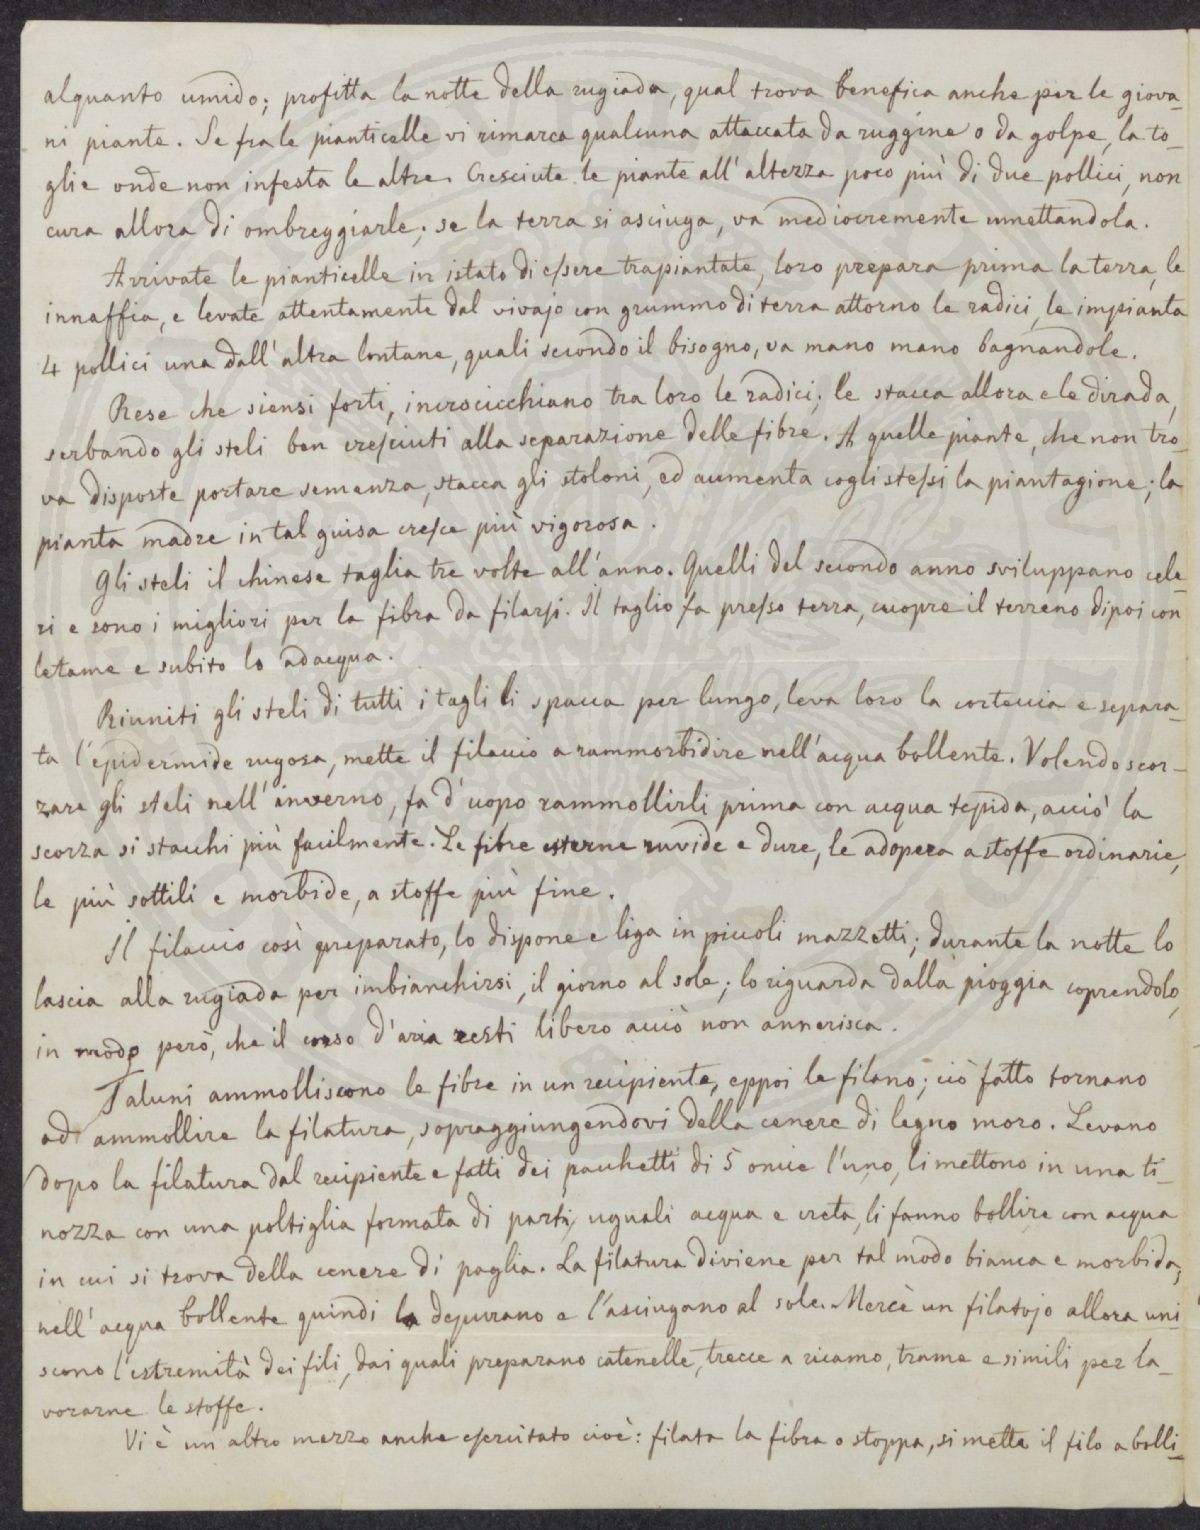 alquanto umido; profitta la notte della rugiada, qual trova benefica anche per le giova-
ni piante. Se fra le pianticelle vi rimarca qualcuna attaccata da ruggine o da golpe, la to-
glie onde non infesta le altre. Cresciute le piante all'altezza poco più di due pollici, non
cura allora di ombreggiarle; se la terra si asciuga, va mediocremente umettandola.
Arrivate le pianticelle in istato di essere trapiantate, loro prepara prima la terra, le
innaffia, e levate attentamente dal vivajo con grummo di terra attorno le radici, le impianta
4 pollici una dall'altra lontane, quali secondo il bisogno, va mano mano bagnandole.
Rese che siensi forti, incrocicchiano tra loro le radici; le stacca allora e le dirada,
serbando gli steli ben cresciuti alla separazione delle fibre. A quelle piante, che non tro-
va disposte portare semenza, stacca gli stoloni, ed aumenta cogli stessi la piantagione; la
pianta madre in tal guisa cresce più vigorosa.
Gli steli il chinese taglia tre volte all'anno. Quelli del secondo anno sviluppano cele-
ri e sono i migliori per la fibra da filarsi. Il taglio fa presso terra, cuopre il terreno dipoi con
letame e subito lo adacqua.
Riuniti gli steli di tutti i tagli li spacca per lungo, leva loro la corteccia e separa-
ta l'epidermide rugosa, mette il filaccio a rammorbidire nell'acqua bollente. Volendo scor-
zare gli steli nell'inverno, fa d'uopo rammollirli prima con acqua tepida, acciò la
scorza si stacchi più facilmente. Le fibre esterne ruvide e dure, le adopera a stoffe ordinarie,
le più sottili e morbide, a stoffe più fine.
Il filaccio così preparato, lo dispone e liga in piccoli mazzetti; durante la notte lo
lascia alla rugiada per imbianchirsi, il giorno al sole; lo riguarda dalla pioggia coprendolo,
in modo però, che il corso d'aria resti libero acciò non annerisca.
Taluni ammolliscono le fibre in un recipiente, eppoi le filano; ciò fatto tornano
ad ammollire la filatura, sopraggiungendovi della cenere di legno moro. Levano
dopo la filatura dal recipiente e fatti dei pacchetti di 5 oncie l'uno, li mettono in una ti-
nozza con una poltiglia formata di parti uguali acqua e creta, li fanno bollire con acqua
in cui si trova della cenere di paglia. La filatura diviene per tal modo bianca e morbida,
nell'acqua bollente quindi la depurano e l'asciugano al sole. Mercè un filatojo allora uni-
scono l'estremità dei fili, dai quali preparano catenelle, trecce a ricamo, trame e simili per la-
vorarne le stoffe.
Vi è un altro mezzo anche esercitato cioè: filata la fibra o stoppa, si mette il filo a bolli-